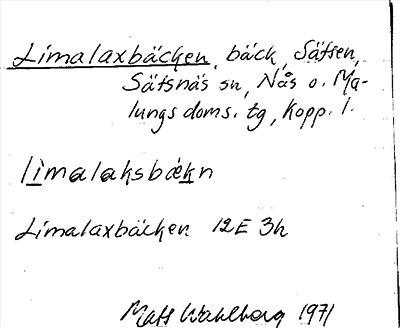 Limalaxbäcken, bäck, Säfsen,
Säfsnäs sn, Nås o. Ma-
lungs doms. tg, Kopp. l.
limalaksbækn
Limalaxbäcken 12E 3h
Mats Wahlberg 1971